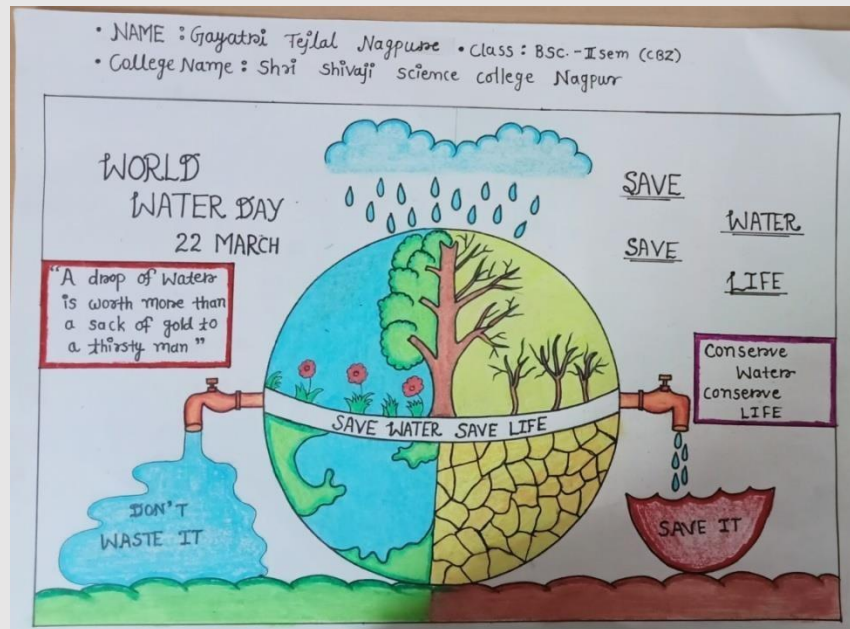 • NAME : Gayatri Tejlal Nagpure • Class : BSC.-II sem (CBZ)
• College Name : Shri Shivaji science college Nagpur
WORLD
WATER DAY
22 MARCH
"A drop of Water
is worth more than
a sack of gold to
a thirsty man"
SAVE
WATER
SAVE
LIFE
Conserve
Water
Conserve
LIFE
SAVE WATER SAVE LIFE
DON'T
WASTE IT
SAVE IT